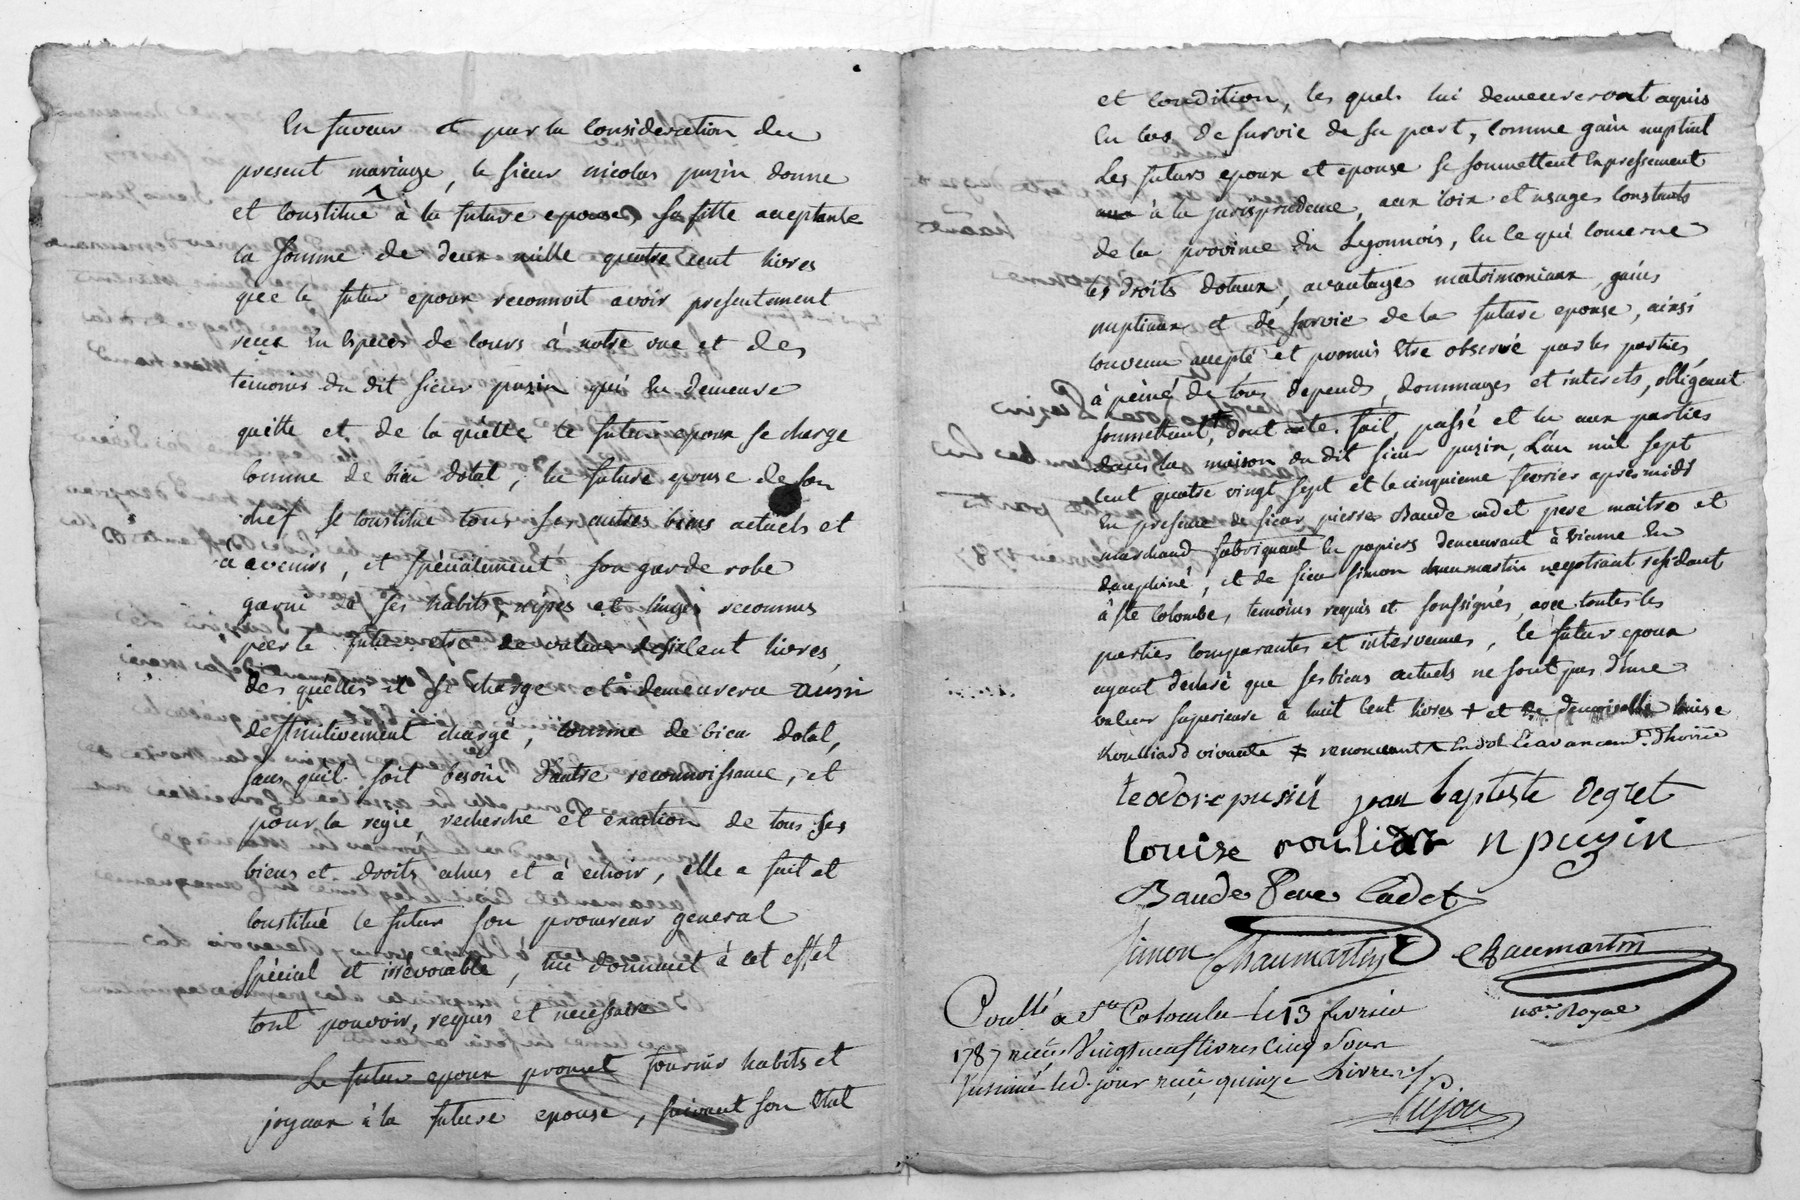 En faveur et par la consideration du
present mariage, le sieur nicolas puzin donne
et constitue à la future epouse, sa fille acceptante
la somme de deux mille quatre cent livres
que le futur epoux reconnoit avoir presentement
reçu en especes de cours à notre vue et des
temoins du dit sieur puzin qui en demeure
quitte et de la quelle le futur epoux se charge
comme de bien dotal, la future epouse de son
chef se constitue tous ses autres biens actuels et
à avenirs, et spécialement son garde robe
garni de ses habits, nipes et linges reconnus
par le futur etre de valeur de six cent livres,
des quelles il se charge et demeurera aussi
deffinitivement chargé, comme de bien dotal,
sans qu'il soit besoin d'autre reconnoissance, et
pour la regie, recherche et exaction de tous ses
biens et droits echus et à echoir, elle a fait et
constitué le futur son procureur general
spécial et irrévocable, lui donnant à cet effet
tout pouvoir, requis et necessaire
Le futur epoux promet fournir habits et
joyaux à la future epouse, suivant son etat
et condition, les quels lui demeureront aquis
en cas de survie de sa part, comme gain nuptial
Les futurs epoux et epouse se soumettent expressement
à la jurisprudence, aux loix et usages constants
de la province du Lyonnois, en ce qui concerne
les droits dotaux, avantages matrimoniaux, gains
nuptiaux et de survie de la future epouse, ainsi
convenu accepté et promis etre observé par les parties
à peine de tous depends, dommages et interets, obligeant
soumettant, dont acte fait, passé et lu aux parties
dans la maison du dit sieur puzin, L'an mil sept
cent quatre vingt sept et le cinquieme fevrier apres midi
en presence de sieur pierre Baude cadet pere maitre et
marchand fabriquant en papiers demeurant à vienne en
dauphiné, et de sieur simon chaumartin negotiant residant
à ste Colombe, temoins requis et soussignés, avec toutes les
parties comparantes et intervenues, le futur epoux
ayant declaré que ses biens actuels ne sont pas d'une
valeur superieure à huit cent livres + et de demoiselle louise
Roulliard vivante ≠ renonceant en dot avancemt. d'hoirie
teodore pusin jean baptiste degret
louise rouliar n puzin
Baude Pere Cadet
Simon Chaumartin Chaumartin
nore. Royal
Conllé a Ste Colombe le 13 fevrier
1787 reçu Vingt neuf livres cinq sous
Insinué led. jour reçu quinze Livres